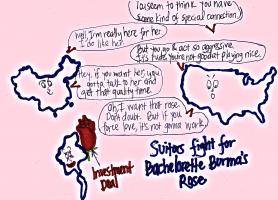 You seem to think you have
some kind of special connection.
Well, I'm really here for her.
I do like her.
But you go & act so aggressive.
It's rude. You're not good at playing nice.
Hey, if you want her, you
gotta talk to her and
get that quality time.
Oh, I want that rose.
Don't doubt. But if you
force love, it's not gonna work.
Investment
Deal
Suitors fight for
Bachelorette Burma's
Rose